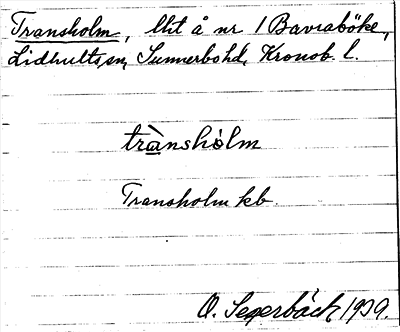 Transholm, lht å nr 1 Bavraböke,
Lidhults sn, Sunnerbo hd, Kronob. l.
trànshòlm
Transholm kb.
O. Segerbäck 1939.